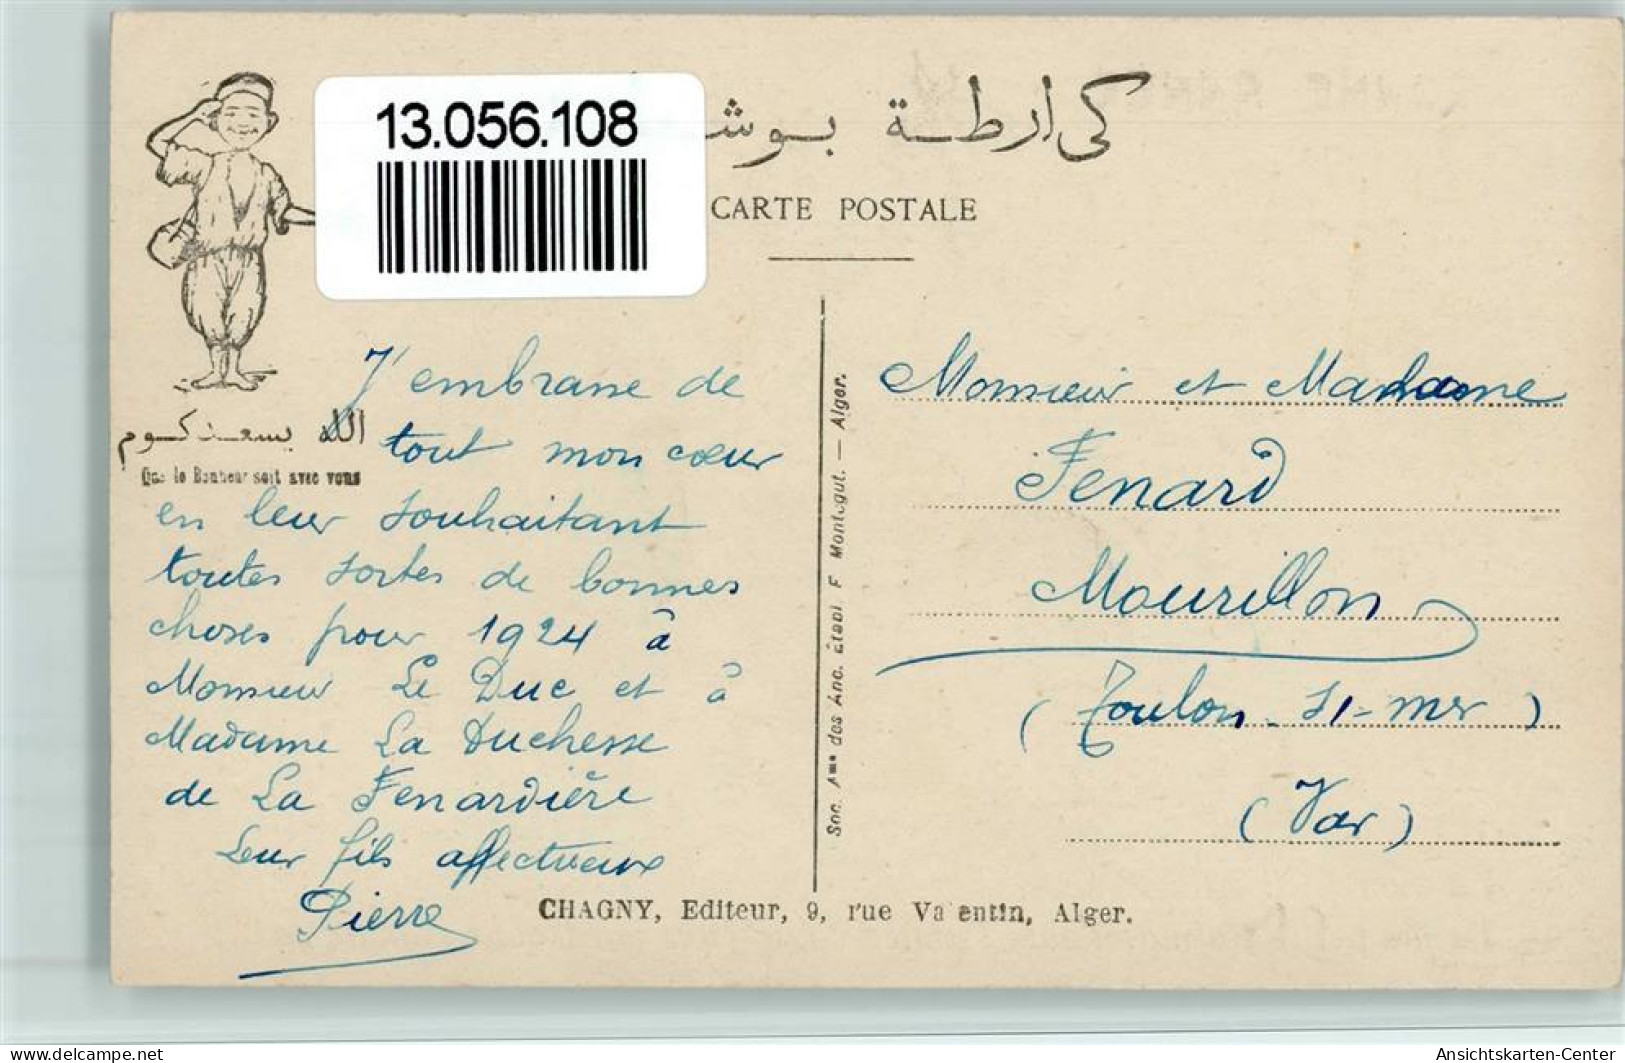 13.056.108
كارطة بوش
CARTE POSTALE
الله يسعدكوم
Que le Bonheur soit avec vous
J'embrasse de
tout mon cœur
en leur souhaitant
toutes sortes de bonnes
choses pour 1924 à
Monsieur Le Duc et à
Madame La Duchesse
de La Fenardière
Leur fils affectueux
Pierre
Soc. Ame des Anc. Établ. F Montégut. — Alger.
Monsieur et Madame
Fenard
Mourillon
( Toulon - s/- mer )
(Var)
CHAGNY, Editeur, 9, rue Valentin, Alger.
delcampe.net
Ansichtskarten-Center